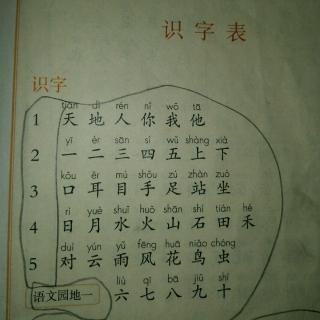 识字表
识字
tiān dì rén nǐ wǒ tā
1 天 地 人 你 我 他
yī èr sān sì wǔ shàng xià
2 一 二 三 四 五 上 下
kǒu ěr mù shǒu zú zhàn zuò
3 口 耳 目 手 足 站 坐
rì yuè shuǐ huǒ shān shí tián hé
4 日 月 水 火 山 石 田 禾
duì yún yǔ fēng huā niǎo chóng
5 对 云 雨 风 花 鸟 虫
liù qī bā jiǔ shí
语文园地一 六 七 八 九 十